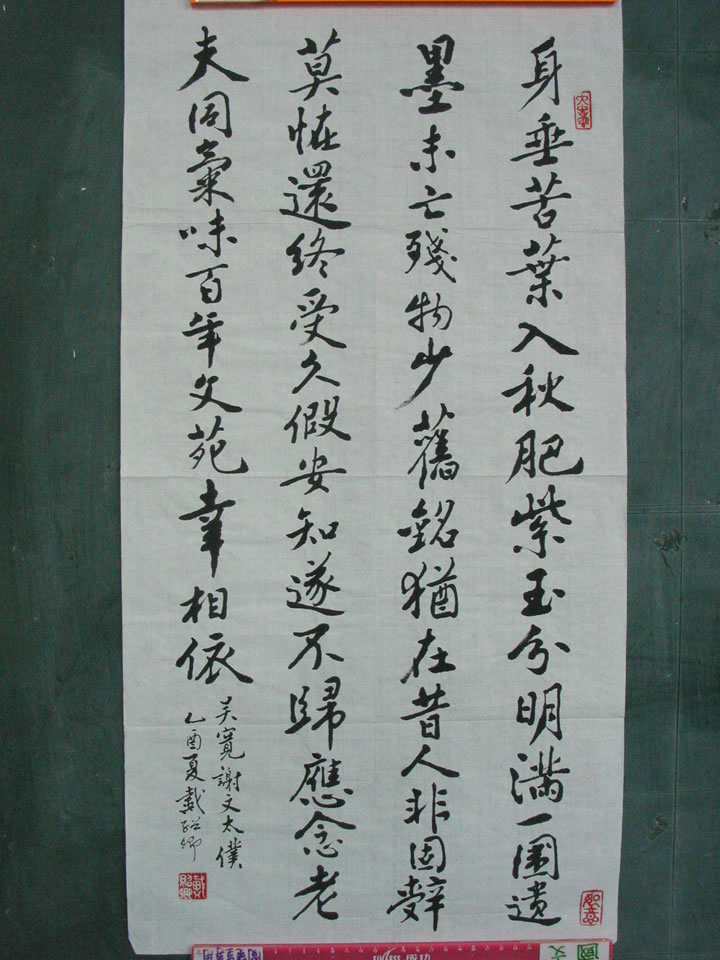 身垂苦葉入秋肥紫玉分明滿一圍遺
墨未亡殘物少舊銘猶在昔人非固辭
莫恠還終受久假安知遂不歸應念老
夫同氣味百年文苑幸相依
吳寬謝文太僕
乙酉夏戴卿
如意
成功